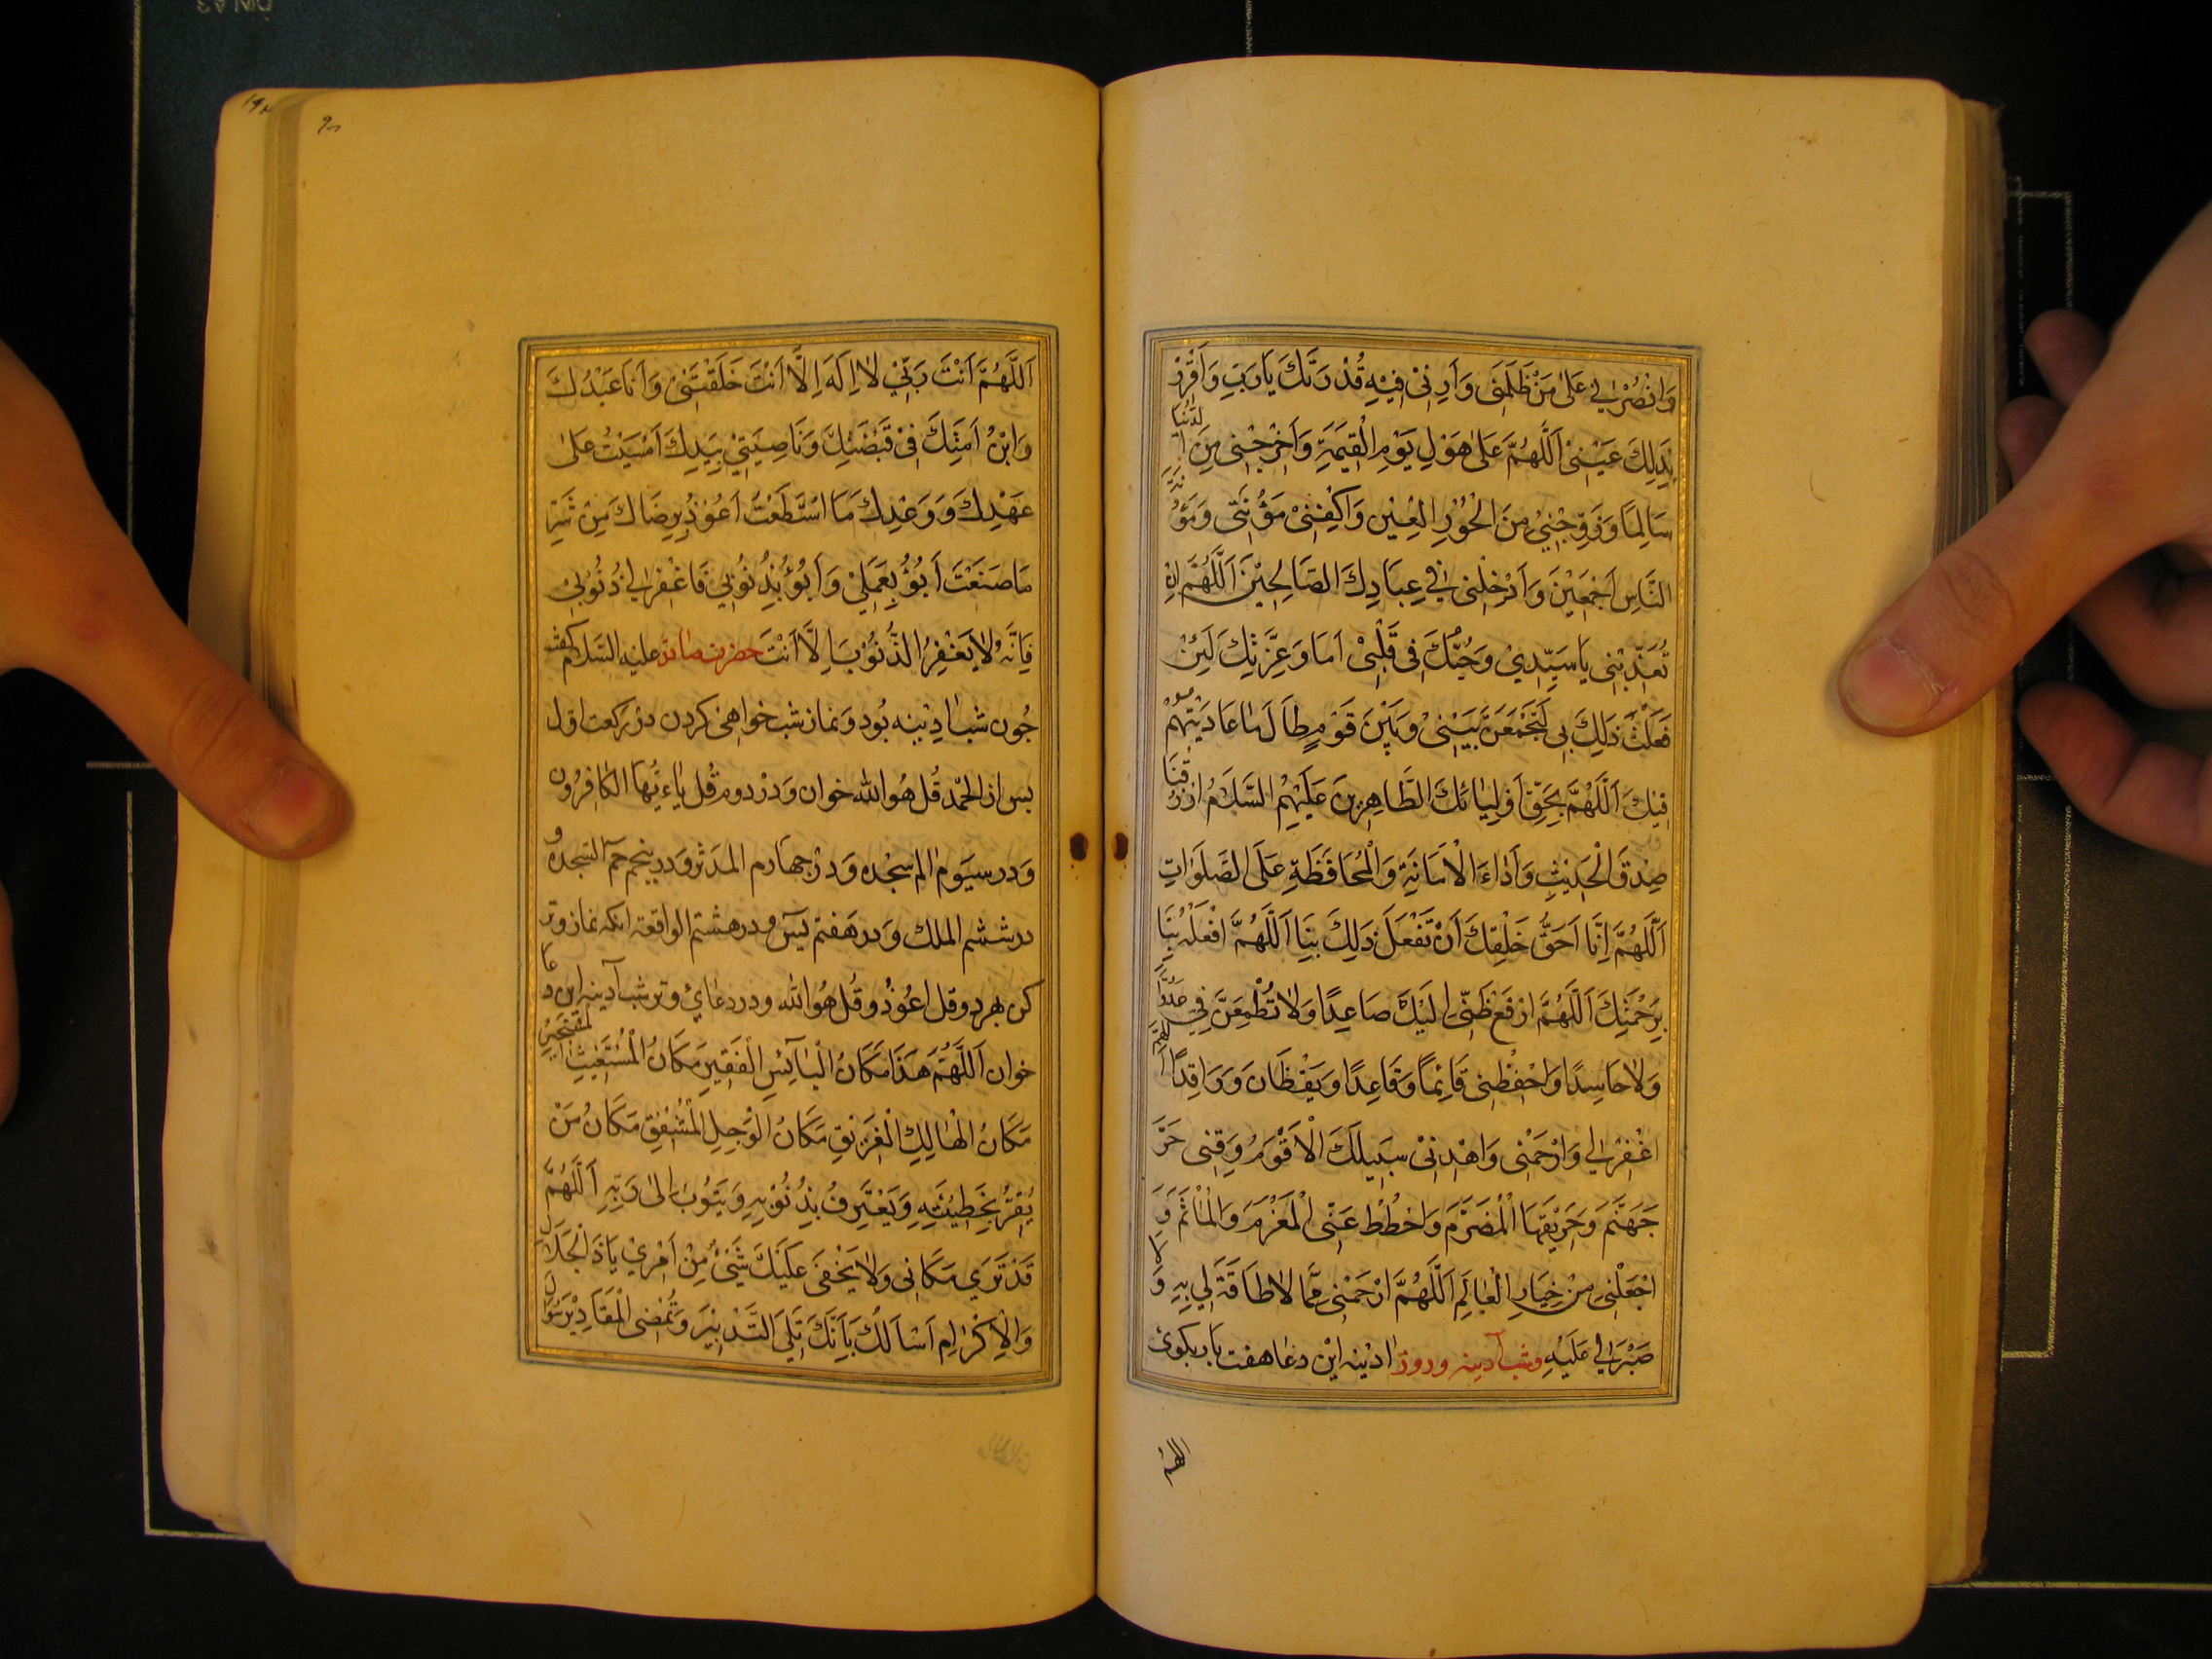 وَانْصُرْلِي عَلىٰ مَنْ ظَلَمَنِی وَاَرِنِیْ فِیْهِ قُدْرَتَكَ یَارَبِّ وَاَقْرِرْ
بِذَلِكَ عَیْنِیْ اَللّٰهُمَّ عَلىٰ هَوْلِ یَوْمِ الْقِیٰمَةِ وَاَخْرِجْنِی مِنَ الدُّنْیَا
سَالِمًا وَزَوِّجْنِیْ مِنَ الْحُوْرِ الْعِیْنِ وَاكْفِنِیْ مَؤُنَتِیْ وَمَؤُنَةَ
النَّاسِ اَجْمَعِیْنَ وَاَدْخِلْنِی فِی عِبَادِكَ الصَّالِحِیْنَ اَللّٰهُمَّ اِنْ
تُعَذِّبْنِی یَاسَیِّدِیْ وَحُبُّكَ فِی قَلْبِیْ اَمَا وَعِزَّتِكَ لَئِنْ
فَعَلْتَ ذَلِكَ بِی لَتَجْمَعَنَّ بَیْنِیْ وَبَیْنَ قَوْمٍ طَالَ مَا عَادَیْتُهُمْ
فِیْكَ اَللّٰهُمَّ بِحَقِّ اَوْلِیٰائِكَ الطَّاهِرِیْنَ عَلَیْهِمُ السَّلَامُ ارْزُقْنَا
صِدْقَ الْحَدِیْثِ وَاَدَاءَ الْاَمَانَةِ وَالْمُحَافَظَةِ عَلَی الصَّلَوَاتِ
اَللّٰهُمَّ اِنَّا اَحَقُّ خَلْقِكَ اَنْ تَفْعَلَ ذٰلِكَ بِنَا اَللّٰهُمَّ افْعَلْهُ بِنَا
بِرَحْمَتِكَ اَللّٰهُمَّ ارْفَعْ ظَنِّی اِلَیْكَ صَاعِدًا وَلَا تُطْمِعَنَّ فِیَّ عَدُوًّا
وَلَا حَاسِدًا وَاحْفَظْنِی قَائِمًا وَقَاعِدًا وَیَقْظَانَ وَرَاقِدًا اَللّٰهُمَّ
اغْفِرْلِی وَارْحَمْنِی وَاهْدِنِیْ سَبِیْلَكَ الْاَقْوَمَ وَقِنِی حَرَّ
جَهَنَّمَ وَحَرِیْقَهَا الْمُضْرَمَ وَاحْطُطْ عَنِّی الْمَغْرَمَ وَالْمَأْثَمَ وَ
اجْعَلْنِی مِنْ خِیَارِ الْعَالَمِ اَللّٰهُمَّ ارْحَمْنِی مِمَّا لَا طَاقَةَ لِی بِهِ وَلَا
صَبْرَ لِی عَلَیْهِ وشب آدینه وروز ادینه این دعا هفت بار بکوی
اللهم
اَللّٰهُمَّ اَنْتَ رَبِّیْ لَا اِلٰهَ اِلَّا اَنْتَ خَلَقْتَنِیْ وَاَنَا عَبْدُكَ
وَابْنُ اَمَتِكَ فِیْ قَبْضَتِكَ وَنَاصِیَتِیْ بِیَدِكَ اَمْسَیْتُ عَلىٰ
عَهْدِكَ وَوَعْدِكَ مَا اسْتَطَعْتُ اَعُوْذُ بِرِضَاكَ مِنْ شَرِّ
مَا صَنَعْتُ اَبُوْءُ بِعَمَلِیْ وَاَبُوْءُ بِذُنُوْبِیْ فَاغْفِرْلِی ذُنُوْبِیْ
فَاِنَّهُ لَا یَغْفِرُ الذُّنُوْبَ اِلَّا اَنْتَ حضرت صادق علیه السّلام کفت
چون شب ادینه بود ونماز شب خواهی کردن در رکعت اول
بس از الحمد قُل هُوَ الله خوان ودر دوم قُل یا ءیُّها الکافِرُون
ودر سیوم الم سجده ودر جهارم المدثر ودر پنجم حم السجده و
در ششم الملك ودر هفتم یس ودر هشتم الواقعة انکه نماز وتر
کن بهر دو قل اعوذ وقُل هُوَ الله ودر دعای وتر شب آدینه این دعا
خوان اَللّٰهُمَّ هَذَا مَكَانُ الْبَائِسِ الْفَقِیرِ مَكَانُ الْمُسْتَغِیْثِ الْمُسْتَجِیْرِ
مَكَانُ الْهَالِكِ الْغَرِیْقِ مَكَانُ الْوَجِلِ الْمُشْفِقِ مَكَانُ مَنْ
یُقِرُّ بِخَطِیْئَتِهِ وَیَعْتَرِفُ بِذُنُوْبِهِ وَیَتُوْبُ اِلٰی رَبِّهِ اَللّٰهُمَّ
قَدْ تَرَی مَكَانِی وَلَا یَخْفَی عَلَیْكَ شَیْءٌ مِنْ اَمْرِیْ یَاذَا الْجَلَالِ
وَالْاِكْرَامِ اَسْاَلُكَ بِاَنَّكَ تَلِیَ التَّدْبِیْرَ وَتُمْضِی الْمَقَادِیْرَ سُوَالَ